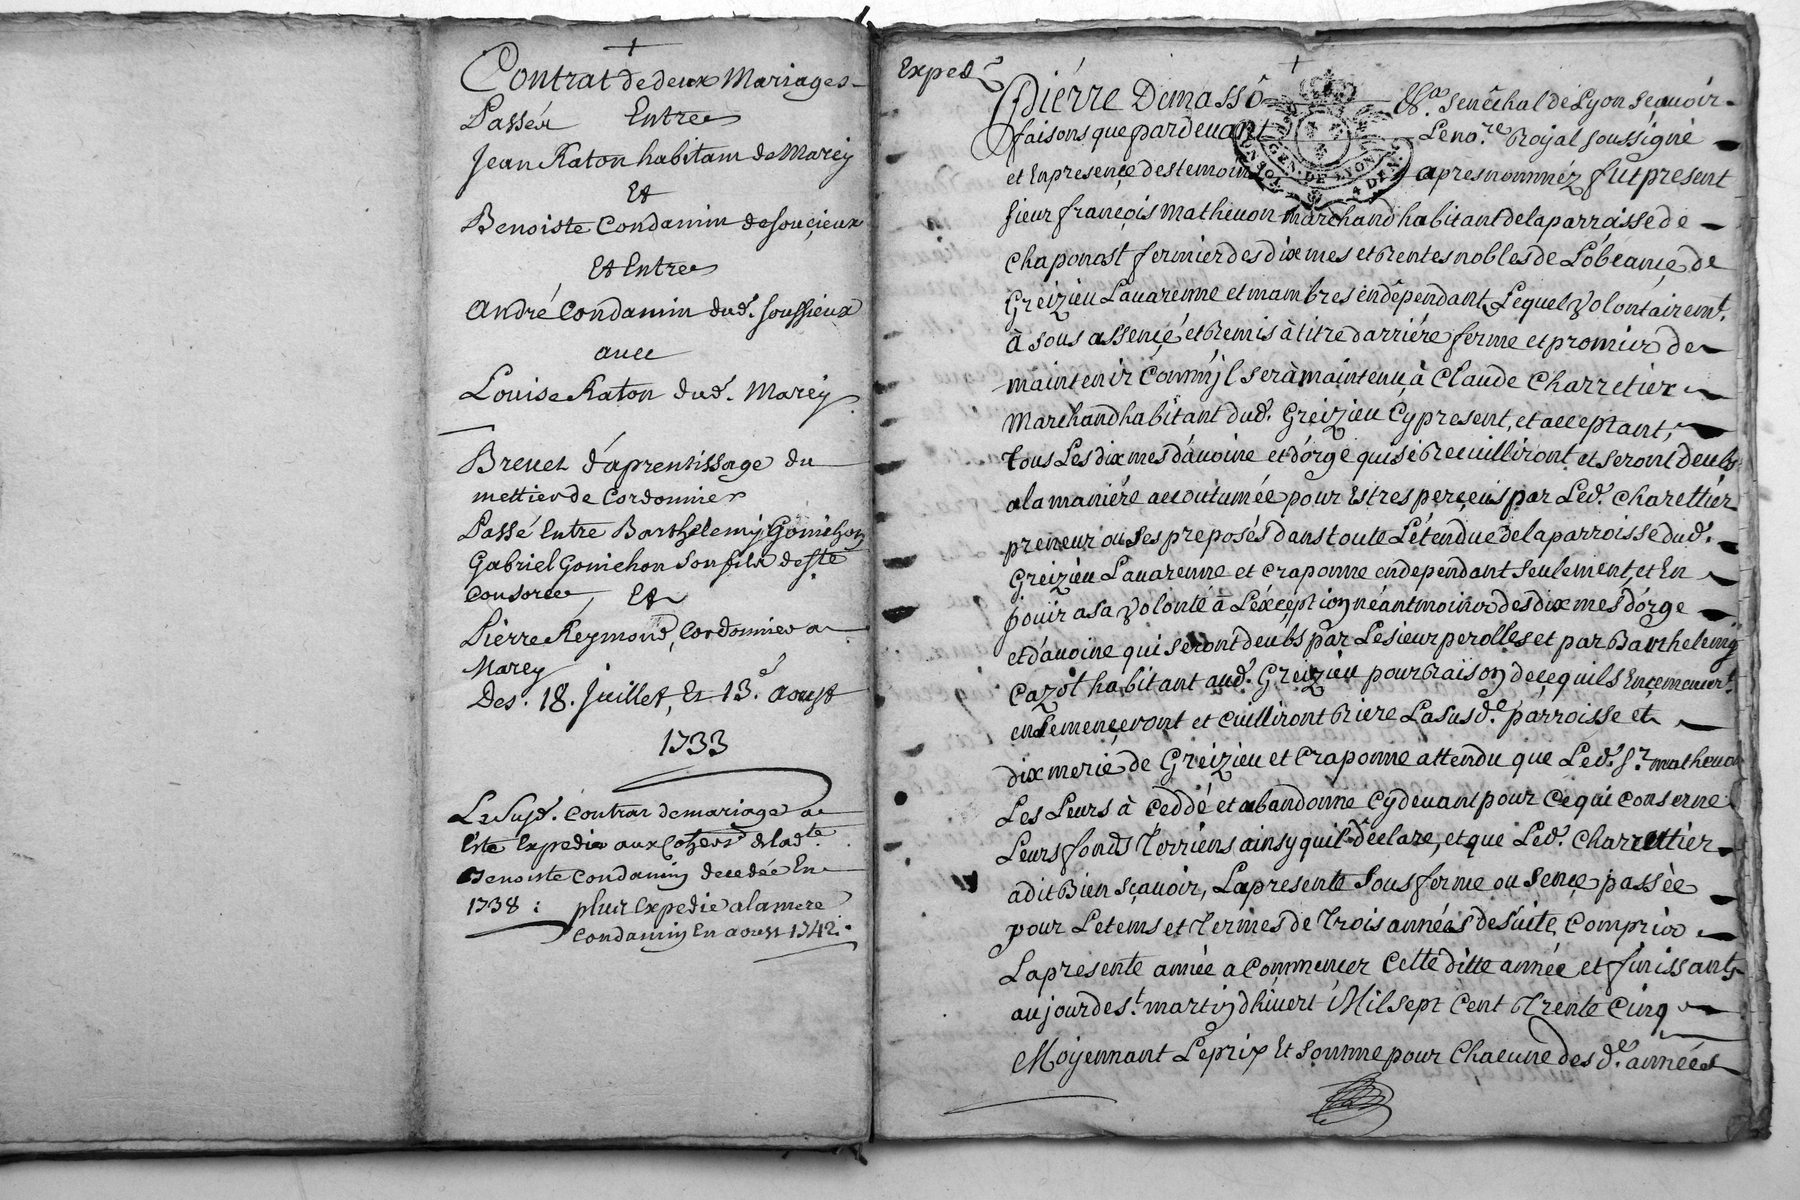 Contrat de deux Mariages
Passés Entre
Jean Raton habitant de Marcy
Et
Benoiste Condamin de souçieux
Et Entre
André Condamin dud. soussieux
avec
Louise Raton dud. Marcy
Brevet d'aprentissage du
mettier de Cordonnier
Passé Entre Barthelemy Gonichon
Gabriel Gonichon son fils de Ste
Consorce, Et
Pierre Reymond, Cordonnier a
Marcy
Des. 18. Juillet, Et 13.e aoust
1733
Le susd. Contrat de mariage a
Esté Expedié aux de lad.te
Benoiste Condamin decedée En
1738 : plus Expedié a la mere
Condamin En aoust 1742.
Exped
Pierre Dumas Sénéchal de Lyon sçavoir
faisons que pardevant Le no.re Royal soussigné
GEN. DE LYON 4 DEN.
et En presençe des temoins apres nommez fut present
sieur françois Mathevon marchand habitant de la parroisse de
Chaponost fermier des dixmes et Rentes nobles de L'obeançe de
Greizieu Lavarenne et mambres en dépendant, Lequel volontairemt.
à sous assençé et Remis à titre d'arriére ferme et promis de
maintenir Comm'jl serà maintenu, à Claude Charretier
Marchand habitant dud. Greizieu Cy present, et acceptant,
tous Les dixmes d'avoine et d'orge qui se Recuilliront et seront deubs
a la maniére accoutumée pour Estres perçeus par Led. Charettier
preneur ou ses preposés dans toute L'étendue de la parroisse dud.
Greizieu Lavarenne et Craponne en dependant seulement, et En
jouir a sa volonté à L'éxception néantmoins des dixmes d'orge
et d'avoine qui seront deubs par Le sieur perolles et par Barthelemy
Cazot habitant aud. Greizieu pour Raison de çe qu'ils
ensemençeront et Cuilliront Riere La susd.e parroisse et
dixmerie de Greizieu et Craponne attendu que Led. Sr. mathevon
Les Leurs à Ceddé et abandonné Cy devant pour Ce qui Conserne
Leurs fonds Terriens ainsy qu'il déclare, et que Led. Charettier
a dit Bien sçavoir, La presente sous ferme ou sençe passée
pour Le tems et Termes de Trois années de suite, Compris
La presente année a Commencer Cette ditte année et finissant
au jour de St. martin d'hivert Mil sept Cent Trente Cinq
Moyennant Le prix Et somme pour Chacune des d.es années